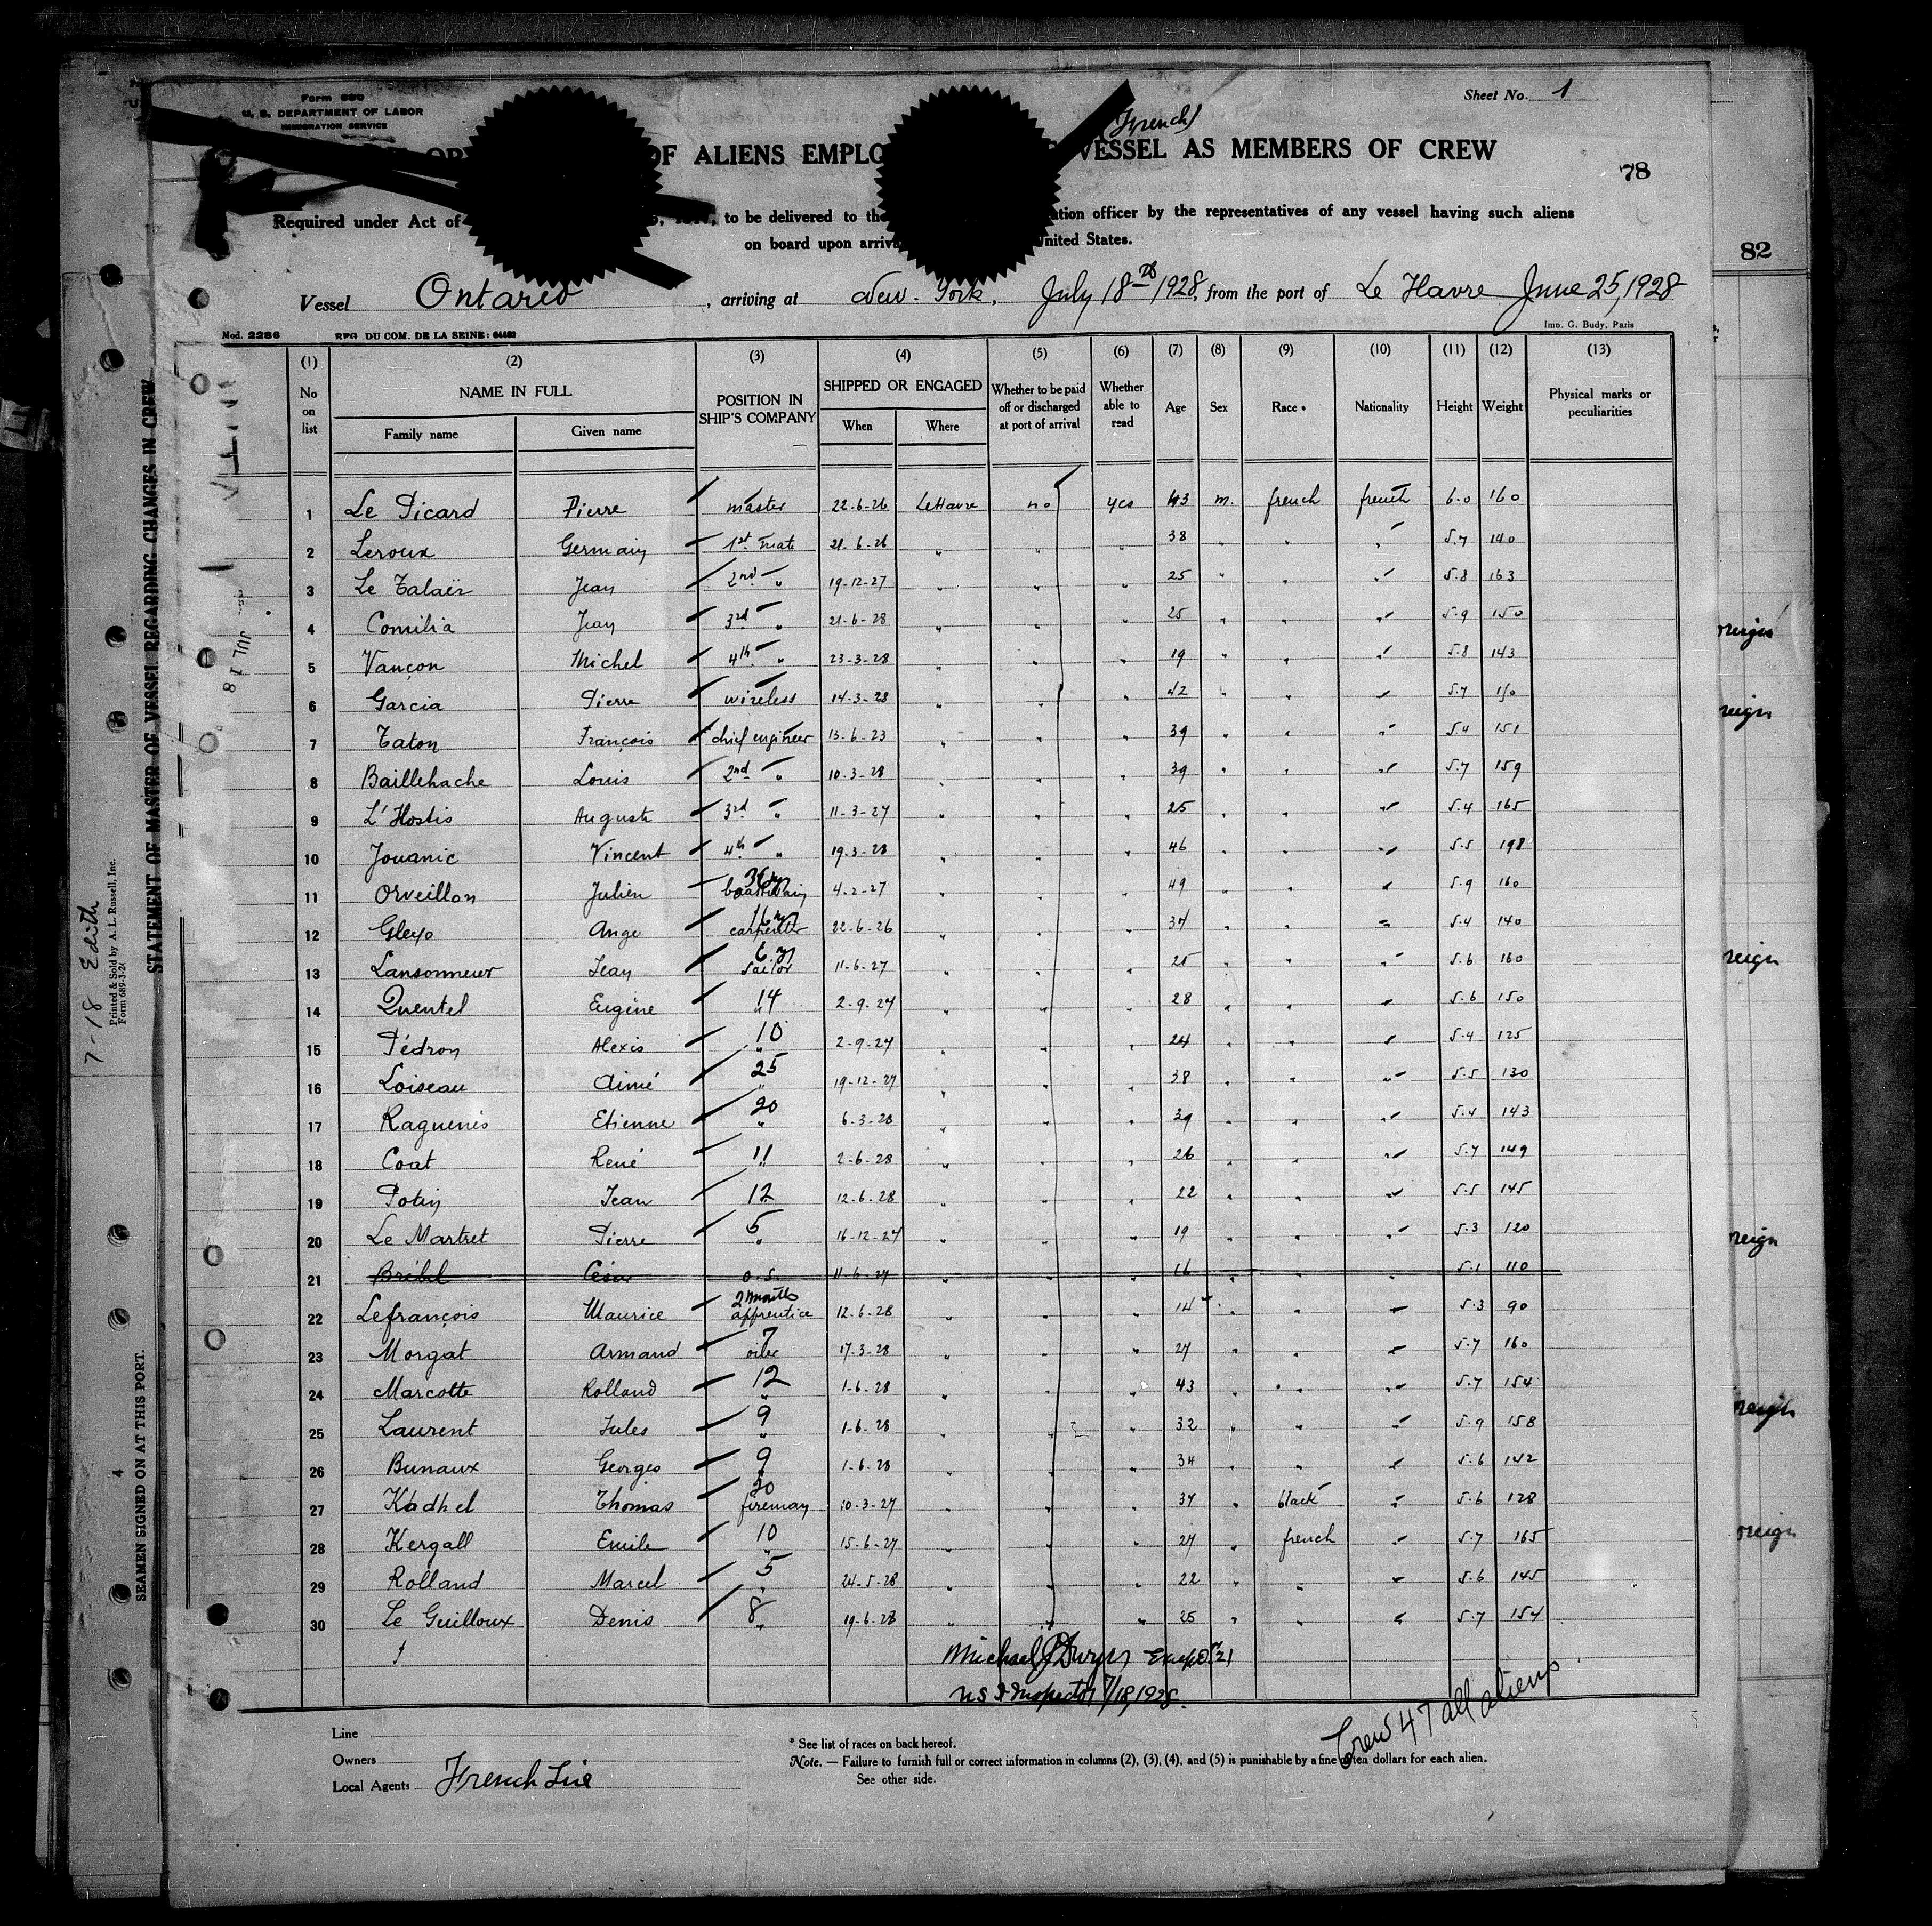 Form 680
U. S. DEPARTMENT OF LABOR
IMMIGRATION SERVICE
Sheet No. 1
(French)
OF ALIENS EMPLO VESSEL AS MEMBERS OF CREW
78
Required under Act of to be delivered to the ation officer by the representatives of any vessel having such aliens
on board upon arriva United States.
82
Vessel Ontario, arriving at New-York, July 18th 1928, from the port of Le Havre June 25, 1928
Mod. 2286 REG DU COM. DE LA SEINE: Imp. G. Budy, Paris
(1) (2) (3) (4) (5) (6) (7) (8) (9) (10) (11) (12) (13)
No on list NAME IN FULL POSITION IN SHIP'S COMPANY SHIPPED OR ENGAGED Whether to be paid off or discharged at port of arrival Whether able to read Age Sex Race * Nationality Height Weight Physical marks or peculiarities
Family name Given name When Where
1 Le Picard Pierre master 22-6-26 LeHavre no yes 43 m. french french 6.0 160
2 Leroux Germain 1st mate 21-6-26 " " " 38 " " " 5.7 140
3 Le Talaër Jean 2nd " 19-12-27 " " " 25 " " " 5.8 163
4 Jean 3rd " 21-6-28 " " " 25 " " " 5.9 150
5 Vançon Michel 4th " 23-3-28 " " " 19 " " " 5.8 143
6 Garcia Pierre wireless 14-3-28 " " " 42 " " " 5.7
7 Taton François chief engineer 13-6-23 " " " 39 " " " 5.4 151
8 Baillehache Louis 2nd " 10-3-28 " " " 39 " " " 5.7 159
9 L'Hostis Auguste 3rd " 11-3-27 " " " 25 " " " 5.4 165
10 Jouanic Vincent 4th " 19-3-28 " " " 46 " " " 5.5 198
11 Orveillon Julien 4-2-27 " " " 49 " " " 5.9 160
12 Gleyo Ange 16 y carpenter 22-6-26 " " " 37 " " " 5.4 140
13 Lansonneur Jean 6 y sailor 11-6-27 " " " 25 " " " 5.6 160
14 Quentel Eugène 14 " 2-9-27 " " " 28 " " " 5.6 150
15 Pédron Alexis 10 " 2-9-27 " " " 24 " " " 5.4 125
16 Loiseau Aimé 25 " 19-12-27 " " " 38 " " " 5.5 130
17 Raguenès Etienne 20 " 6-3-28 " " " 39 " " " 5.4 143
18 Coat René 11 " 2-6-28 " " " 26 " " " 5.7 149
19 Potin Jean 12 " 12-6-28 " " " 22 " " " 5.5 145
20 Le Martret Pierre 5 " 16-12-27 " " " 19 " " " 5.3 120
21 César o.s. 11-6-27 " " " 16 " " " 5.1 110
22 Lefrançois Maurice 2 months apprentice 12-6-28 " " " 14 " " " 5.3 90
23 Morgat Armand 7 oiler 17-3-28 " " " 27 " " " 5.7 160
24 Marcotte Rolland 12 " 1-6-28 " " " 43 " " " 5.7 154
25 Laurent Jules 9 " 1-6-28 " " " 32 " " " 5.9 158
26 Bunaux Georges 9 " 1-6-28 " " " 34 " " " 5.6 142
27 Kadhel Thomas 20 fireman 10-3-27 " " " 37 " black " 5.6 128
28 Kergall Emile 10 " 15-6-27 " " " 27 " french " 5.7 165
29 Rolland Marcel 5 " 24-5-28 " " " 22 " " " 5.6 145
30 Le Guilloux Denis 8 " 19-6-28 " " " 25 " " " 5.7 154
Michael
U S I Inspector 7/18/1928.
Crew 47 all aliens
Line
Owners
Local Agents French Line
* See list of races on back hereof.
Note. — Failure to furnish full or correct information in columns (2), (3), (4), and (5) is punishable by a fine of ten dollars for each alien.
See other side.
STATEMENT OF MASTER OF VESSEL REGARDING CHANGES IN CREW
SEAMEN SIGNED ON AT THIS PORT.
Printed & Sold by A. L. Russell, Inc.
Form 689-3-2
7-18 Edith
4
JUL 18
reign
reign
reign
reign
reign
reign